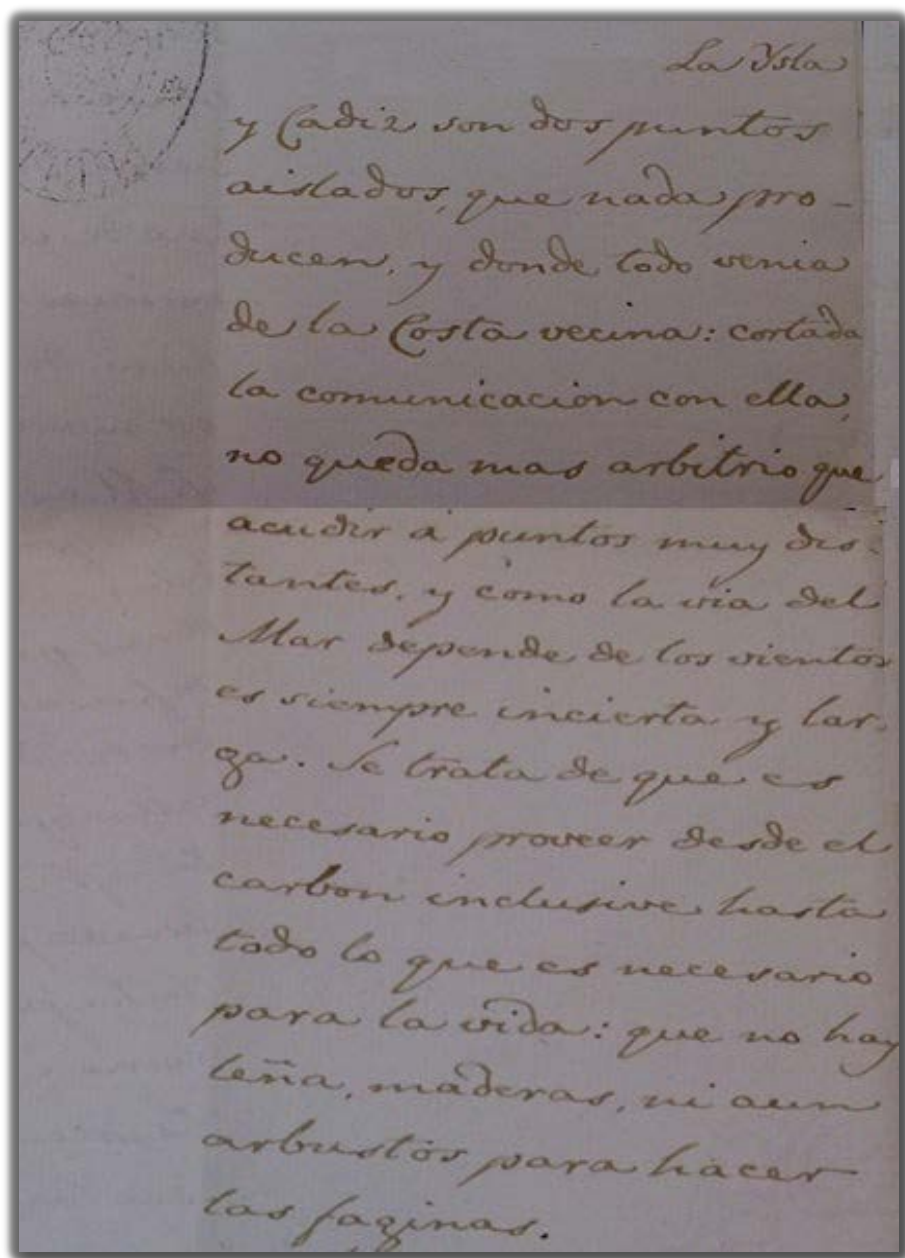 La Ysla
y Cadiz son dos puntos
aislados, que nada pro-
ducen, y donde todo venia
de la Costa vecina: cortada
la comunicacion con ella,
no queda mas arbitrio que
acudir á puntos muy dis-
tantes, y como la via del
Mar depende de los vientos
es siempre incierta y lar-
ga. Se trata de que es
necesario proveer desde el
carbon inclusive hasta
todo lo que es necesario
para la vida: que no hay
leña, maderas, ni aun
arbustos para hacer
las faginas.